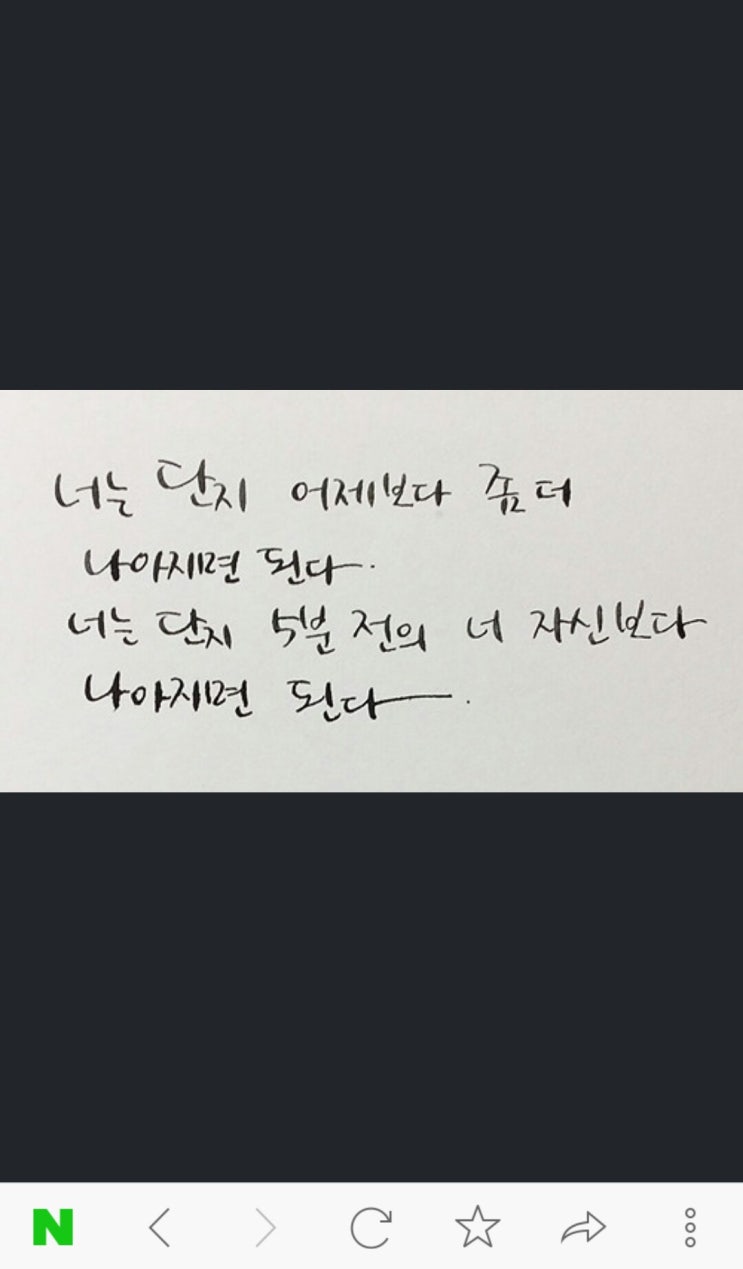 너는 단지 어제보다 좀 더
나아지면 된다.
너는 단지 5분 전의 너 자신보다
나아지면 된다.
N